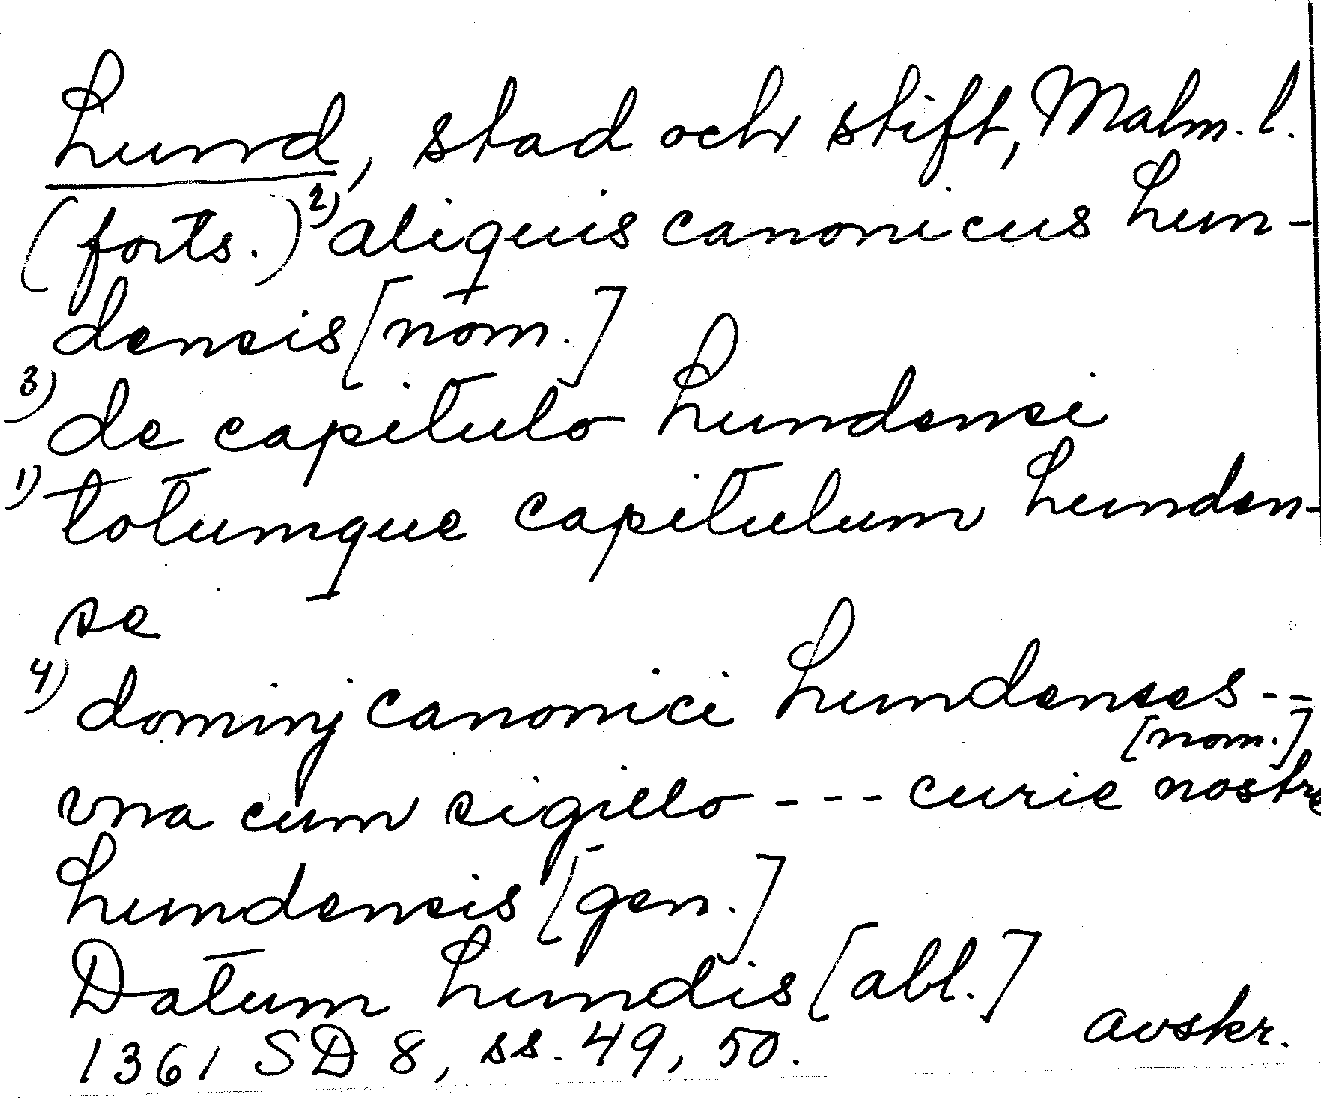 Lund, stad och stift, Malm. l.
(forts.) 2) aliquis canonicus Lun-
densis [nom.]
3) de capitulo Lundensi
1) totumque capitulum Lunden-
se
4) dominj canonici Lundenses - - -
[nom.]
vna cum sigillo - - - curie nostre
Lundensis [gen.]
Datum Lundis [abl.]
1361 SD 8, ss. 49, 50. avskr.